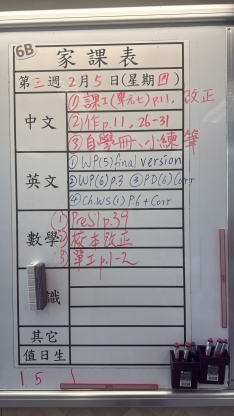 6B
家課表
第三週2月5日(星期四)
中文
①課工(單元七)p.11, 改正
②作p.11, 26-31
③自學冊、小練筆
英文
①WP(5)final version
②WP(6)p.3 ③PD(6)Corr
④Ch.WS(1)P.6+Corr
數學
①PreS1p.39
②校本改正
③單工p.1-2
識
其它
值日生
15